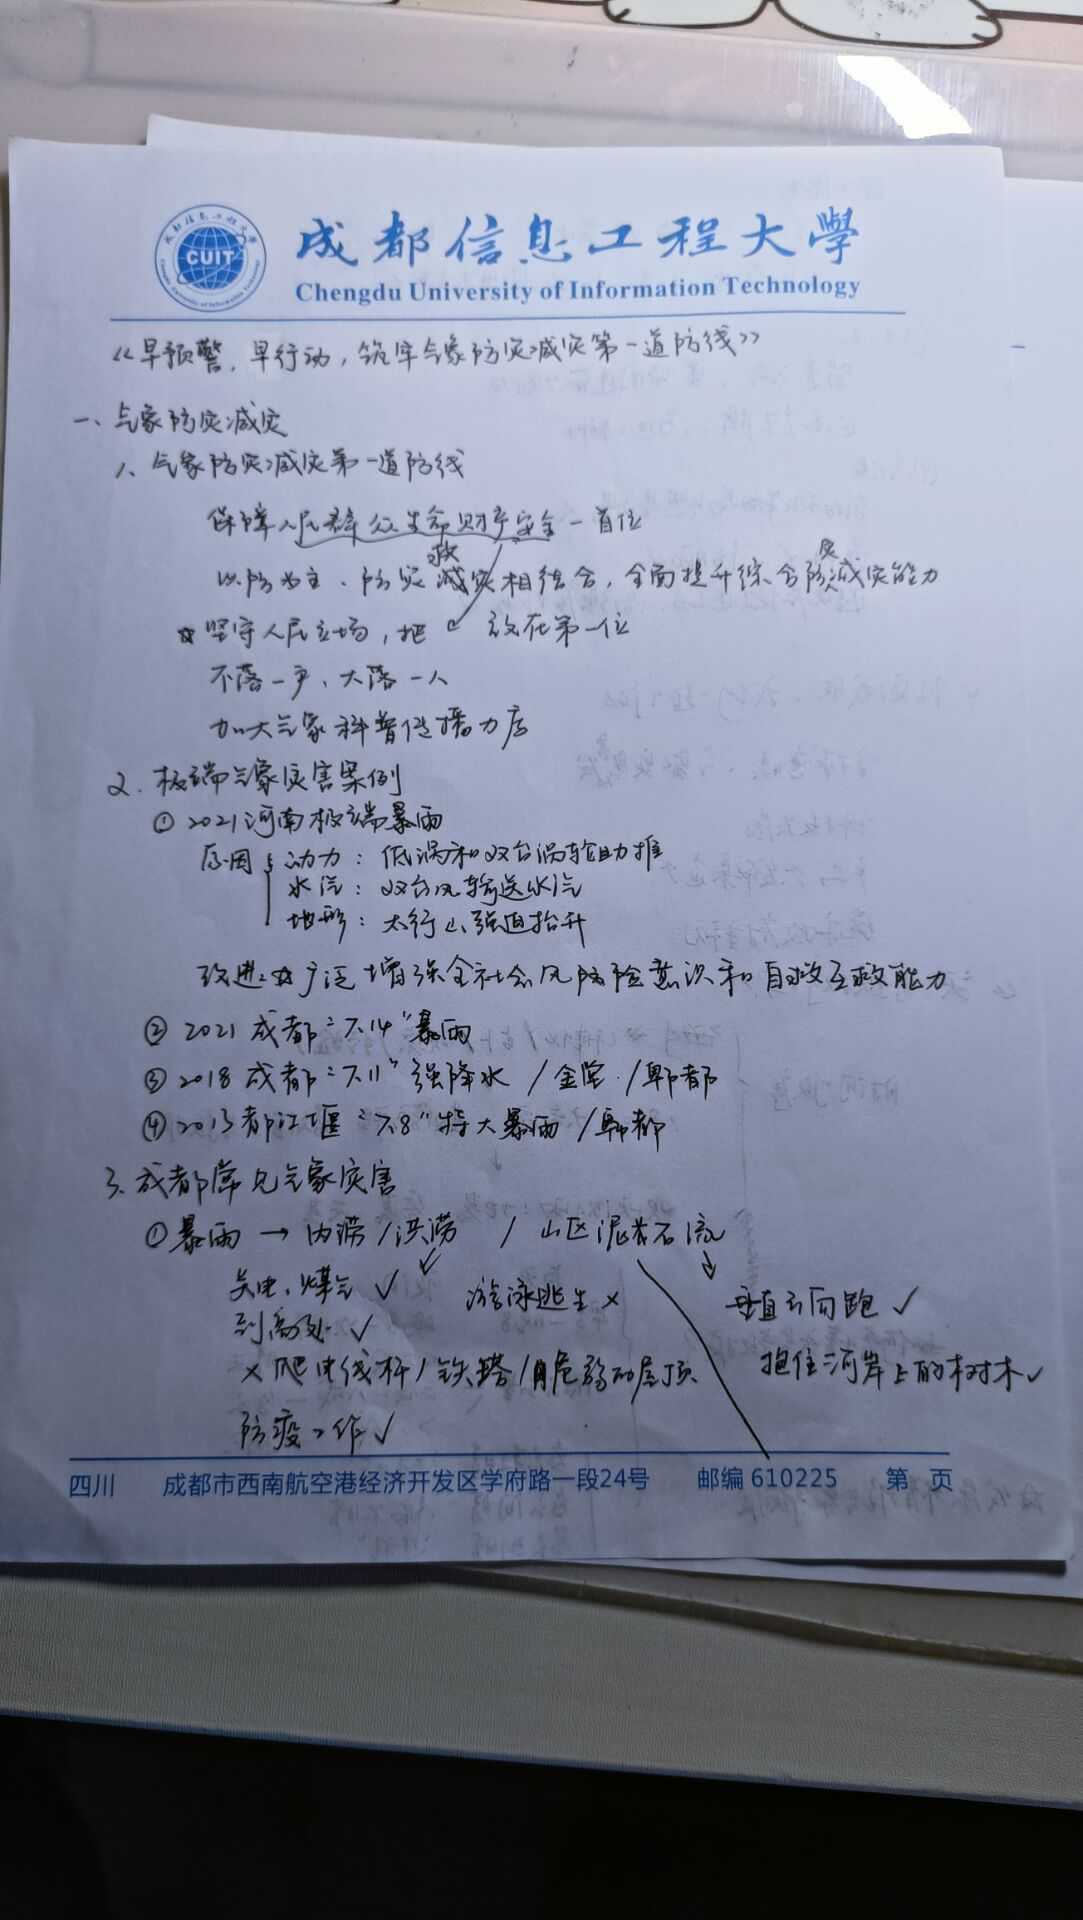 成都信息工程大學
CUIT
Chengdu University of Information Technology
《早预警,早行动,筑牢气象防灾减灾第一道防线》
一、气象防灾减灾
1、气象防灾减灾第一道防线
保障人民群众生命财产安全一首位
以防为主、防灾救减灾相结合,全面提升综合防灾减灾能力
☆坚守人民立场,把 放在第一位
不落一户、大落一人
加大气象科普传播力度
2、极端气象灾害案例
① 2021河南极端暴雨
原因 动力:低涡和双台涡轮助推
水汽:双台风输送水汽
地形:太行山强迫抬升
改进:☆广泛增强全社会风防险意识和自救互救能力
② 2021 成都“7.14”暴雨
③ 2018 成都“7.11”强降水/金堂/郫都
④ 2013都江堰“7.8”特大暴雨/郫都
3、成都常见气象灾害
①暴雨→内涝/洪涝 / 山区泥石流
关电、煤气 ✓ 游泳逃生 × 垂直方向跑 ✓
到高处 ✓
× 爬电线杆/铁塔/脆弱的屋顶 抱住河岸上的树木 ✓
防疫工作 ✓
四川 成都市西南航空港经济开发区学府路一段24号 邮编 610225 第 页